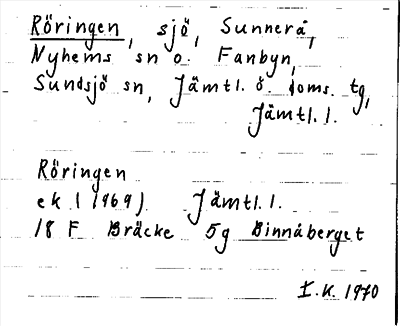 Röringen, sjö, Sunnerå,
Nyhems sn o. Fanbyn,
Sundsjö sn, Jämtl. ö. doms. tg,
Jämtl. l.
Röringen
ek (1969) Jämtl. l.
18 F Bräcke 5g Binnåberget
I.K. 1970